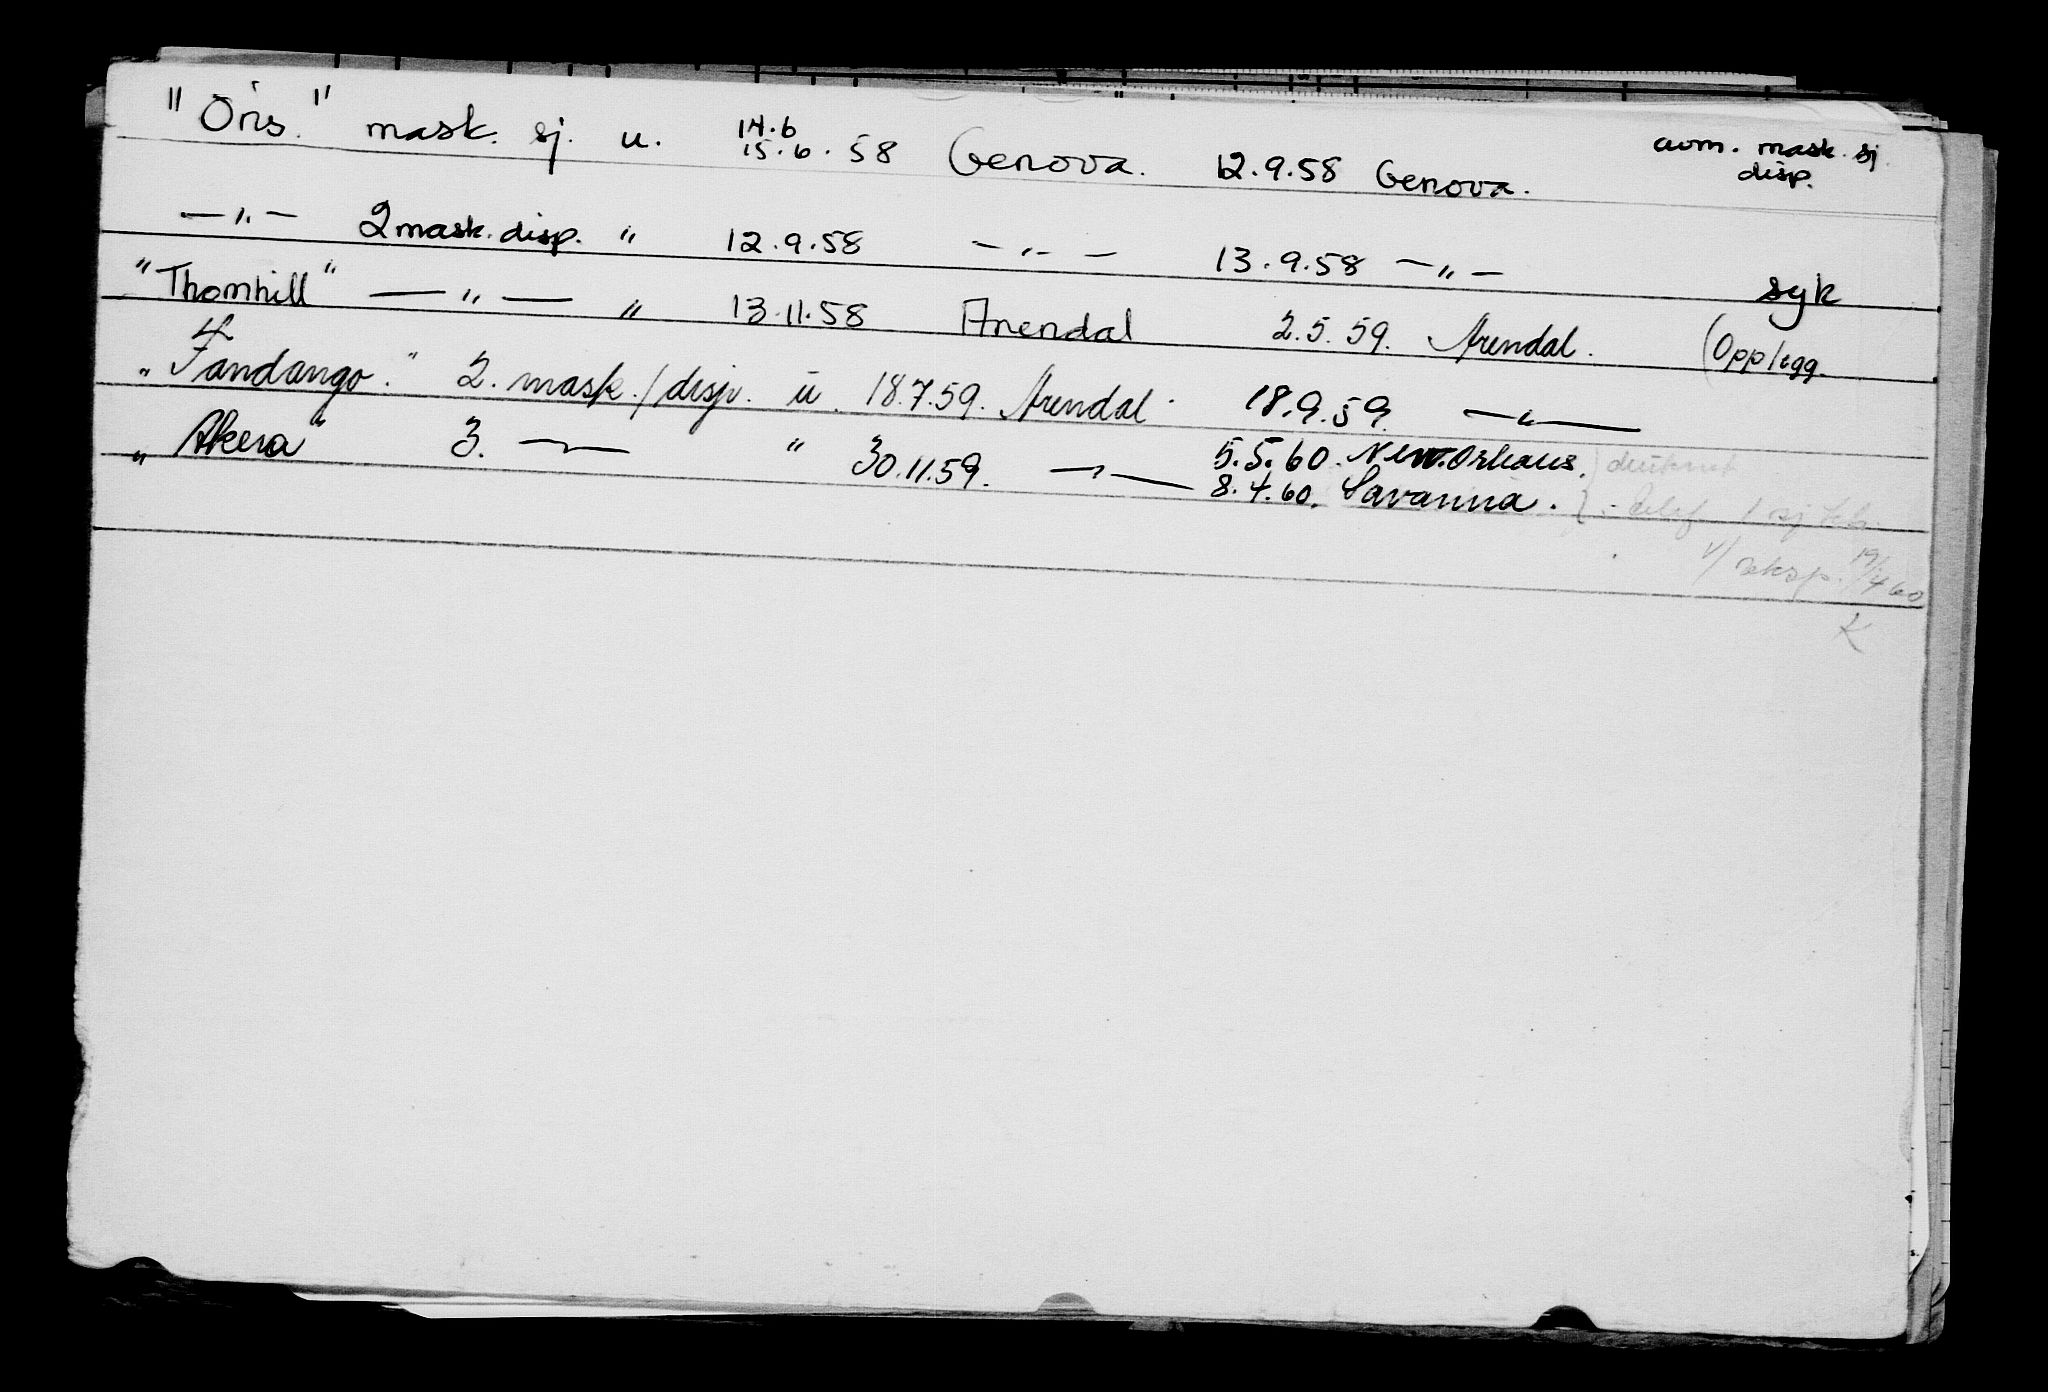 "Oris." mask. sj. u. 14.6 15.6.58 Genova. 12.9.58 Genova. avm. mask. sj. disp.
— " — 2 mask. disp. " 12.9.58 — " — 13.9.58 — " — syk
"Thornhill" — " — " 13.11.58 Arendal 2.5.59. Arendal. (Opplegg.
"Fandango." 2. mask./disp. u. 18.7.59. Arendal. 18.9.59. — " —
"Akera" 3. — " — " 30.11.59. — " — 5.5.60. New.Orleans.
8.4.60. Savanna.
1 sj
v/ eksp. 19/4 60
K